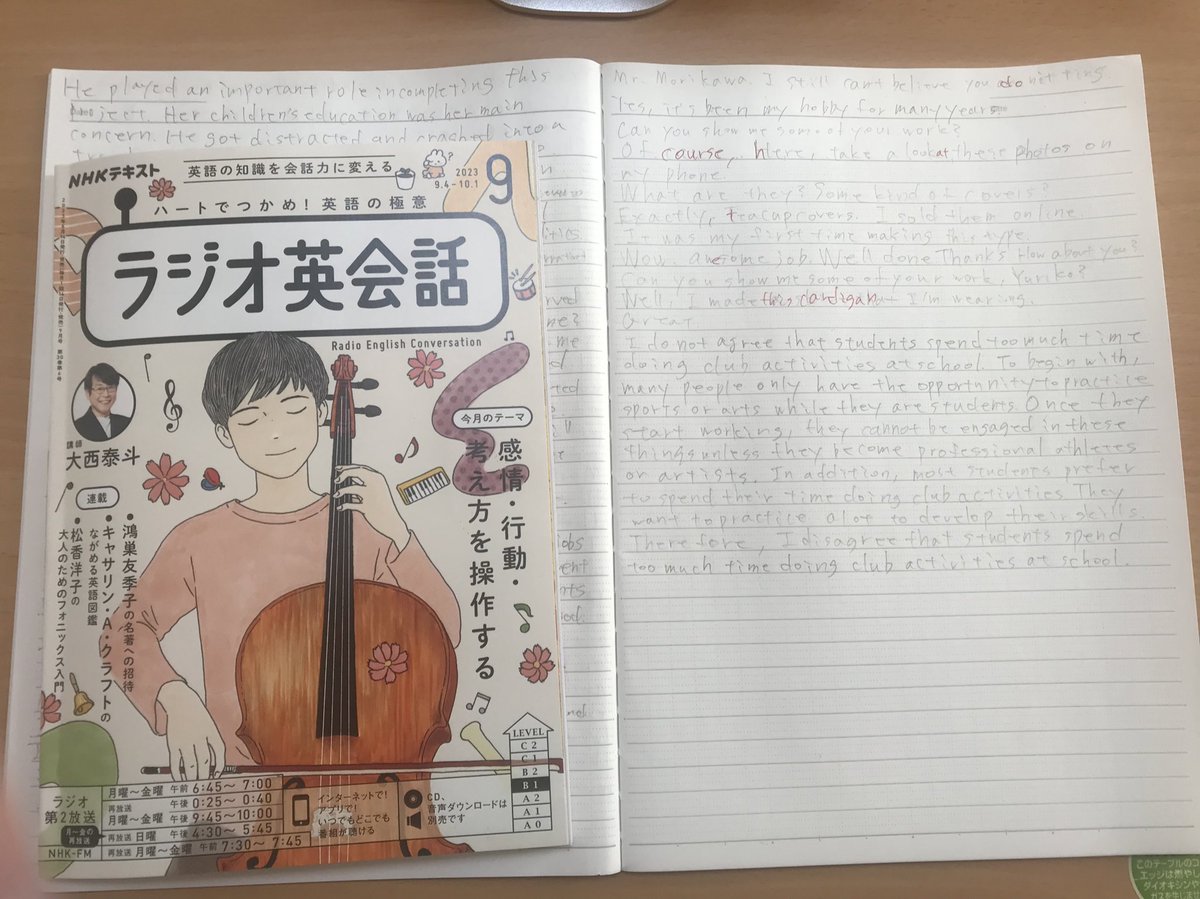 He played an important role incompleting this
project. Her children's education was her main
concern. He got distracted and crashed into a
NHKテキスト
英語の知識を会話力に変える
2023
9.4-10.1
9
ハートでつかめ！英語の極意
ラジオ英会話
Radio English Conversation
講師
大西泰斗
今月のテーマ
感情・行動・
考え方を操作する
連載
・鴻巣友季子の名著への招待
・キャサリン・A・クラフトの
ながめる英語図鑑
・松香洋子の
大人のためのフォニックス入門
LEVEL
C2
C1
B2
B1
A2
A1
A0
ラジオ
第2放送
月〜金の
再放送
NHK-FM
月曜〜金曜 午前 6:45〜 7:00
再放送 月曜〜金曜 午後 0:25〜 0:40
午後 9:45〜10:00
再放送 日曜 午後 4:30〜 5:45
再放送 月曜〜金曜 午前 7:30〜 7:45
インターネットで！
アプリで！
いつでもどこでも
番組が聴ける
CD、
音声ダウンロードは
別売です
Mr. Morikawa. I still can't believe you do netting.
Yes, it's been my hobby for many years
Can you show me some of your work?
Of course, Here, take a look at these photos on
my phone.
What are they? Some kind of covers?
Exactly, teacup covers. I sold them online.
It was my first time making this type.
Wow, awesome job. Well done. Thanks How about you?
Can you show me some of your work, Yuriko?
Well, I made this cardigan I'm wearing.
Great.
I do not agree that students spend too much time
doing club activities at school. To begin with,
many people only have the opportunity to practice
sports or arts while they are students. Once they
start working, they cannot be engaged in these
things unless they become professional athletes
or artists. In addition, most students prefer
to spend their time doing club activities. They
want to practice a lot to develop their skills.
Therefore I disagree that students spend
too much time doing club activities at school.
このテーブルのコ
エッジは燃やし
ダイオキシンや